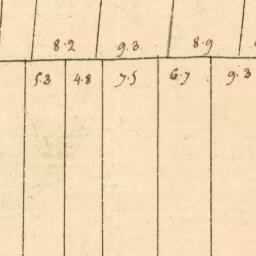 8.2 9.3 8.9
5.3 4.8 7.5 6.7 9.3